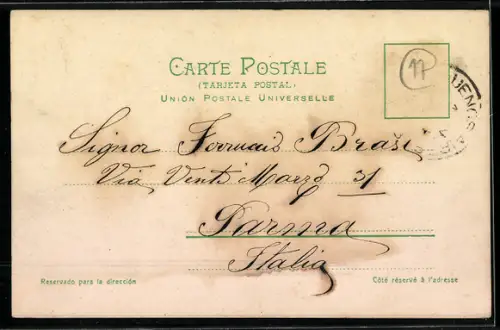 CARTE POSTALE
(TARJETA POSTAL)
UNIÓN POSTALE UNIVERSELLE
17
BUENOS AIR
Signor Ferruccio Brasi
Via Venti Marzo 31
Parma
Italia
Reservado para la dirección
Côté réservé à l'adresse